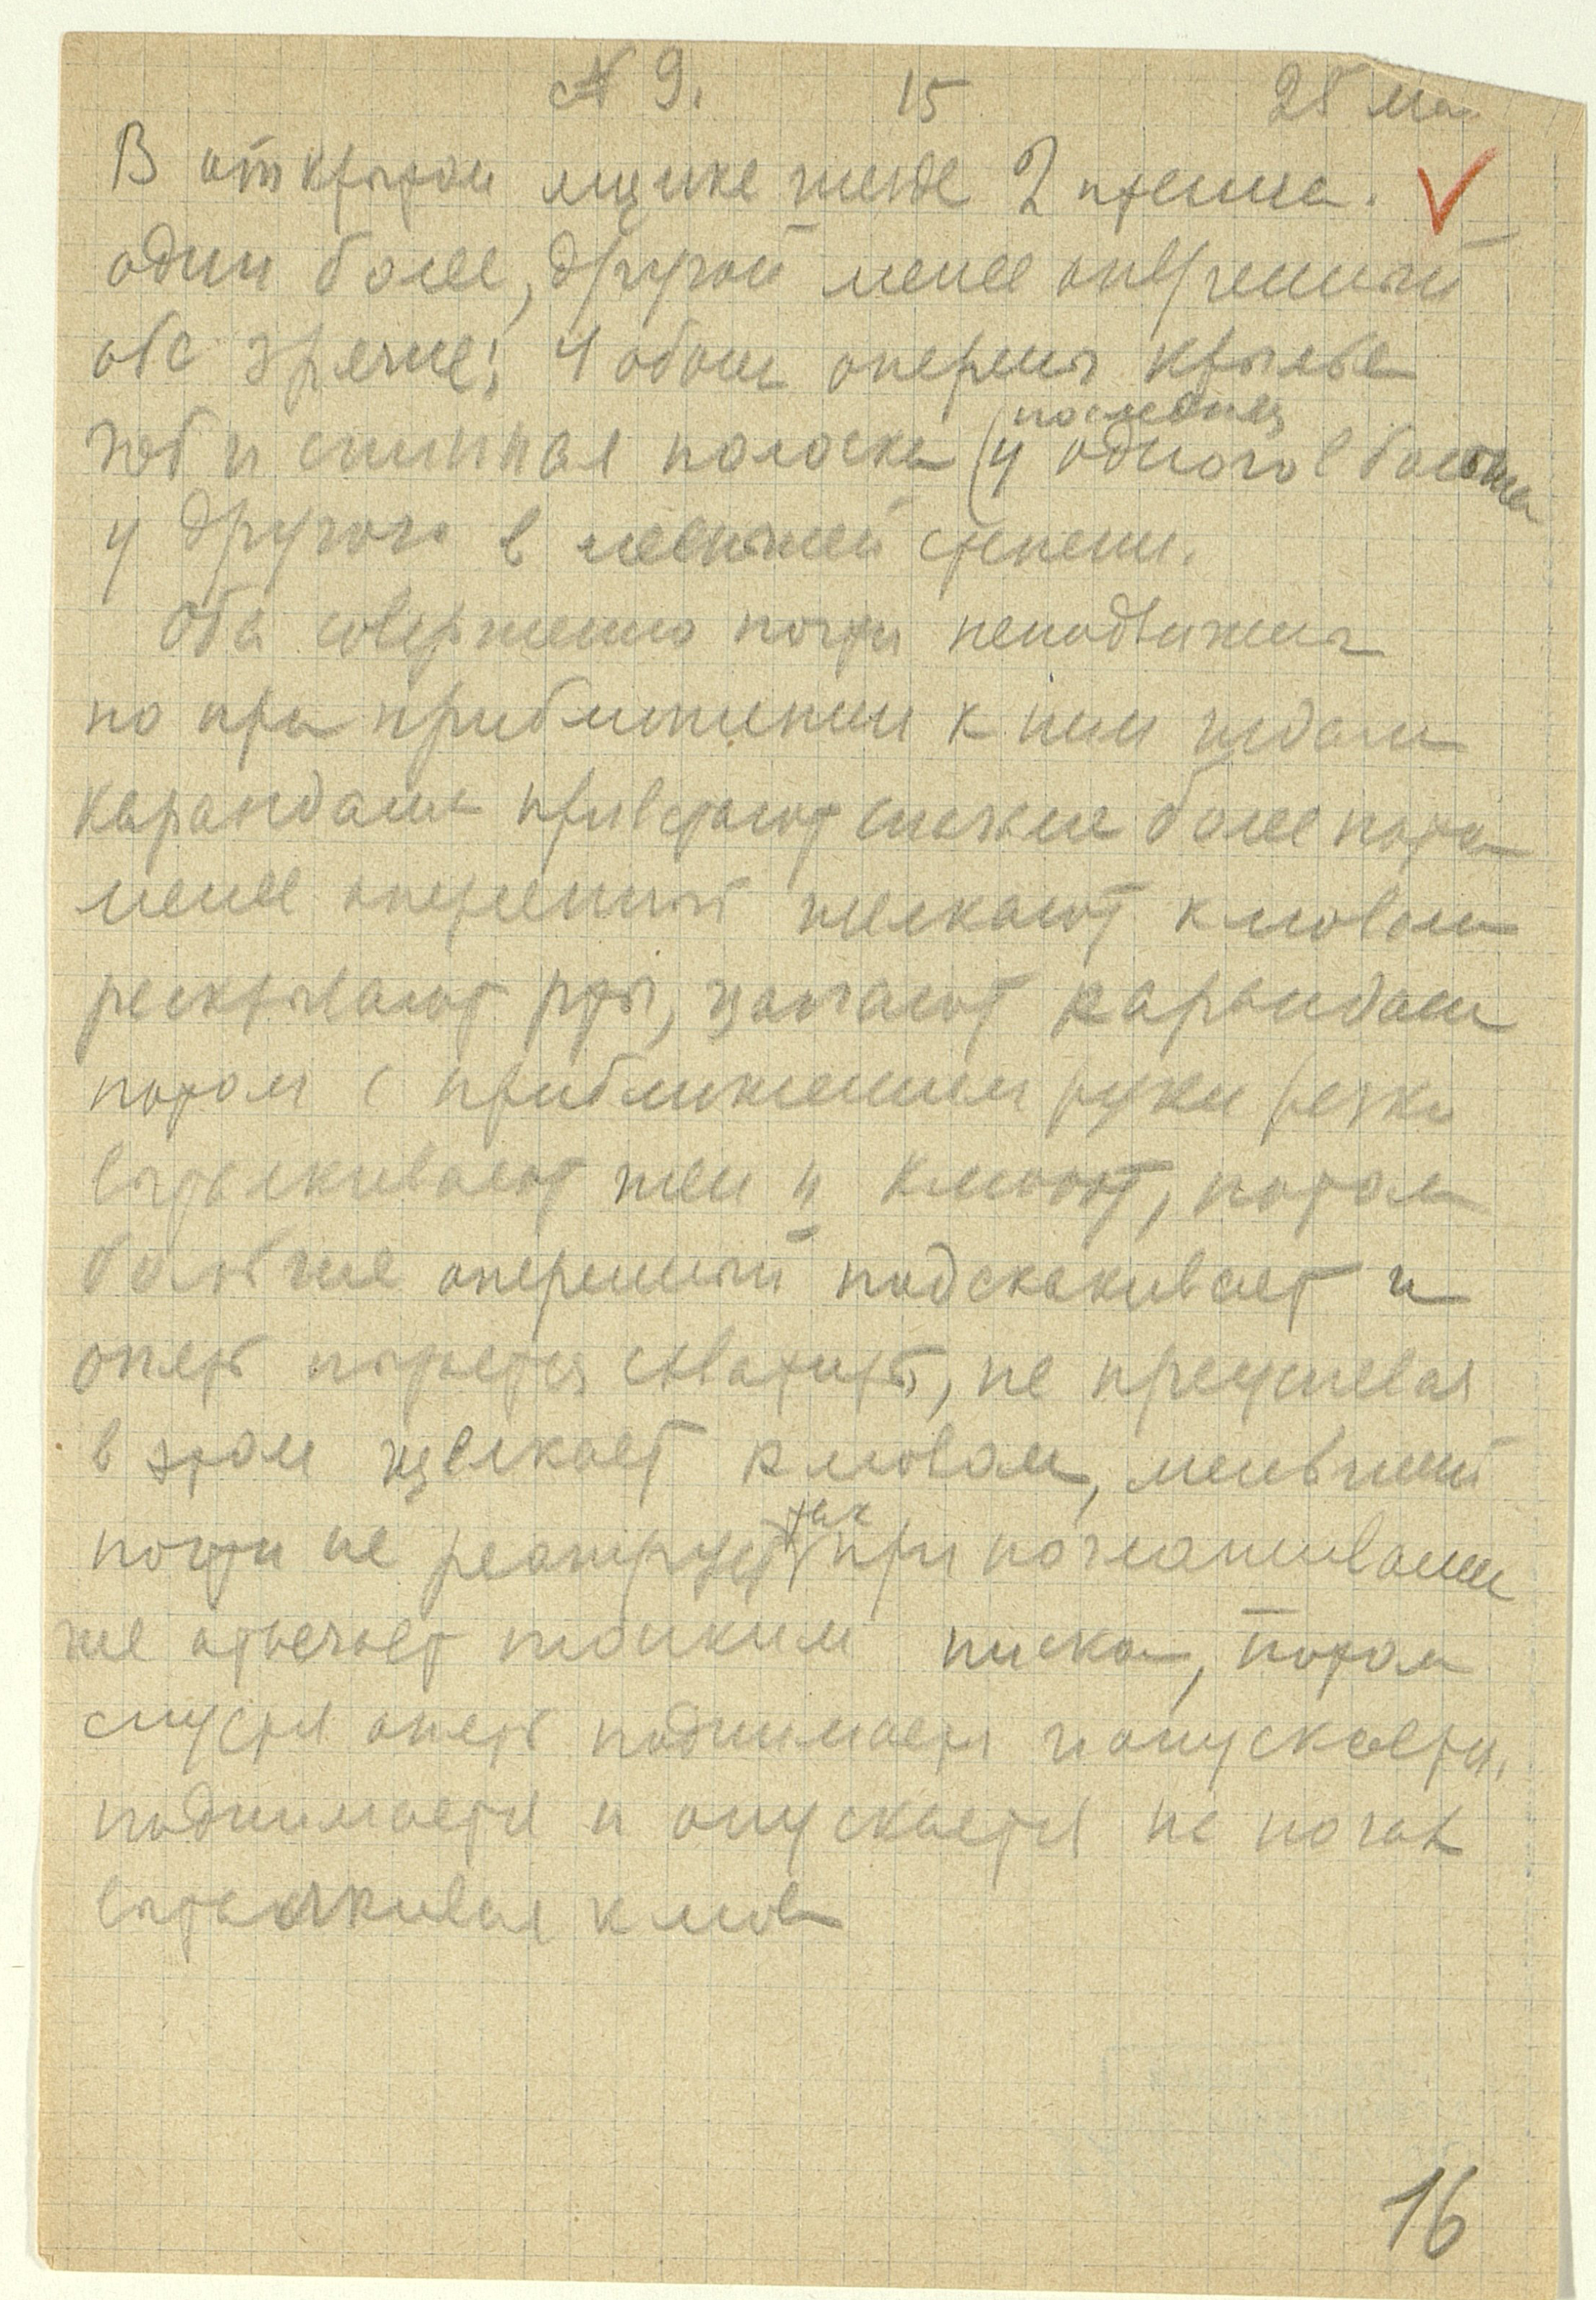 № 9. 15 28 мая
В открытом ящике гнезде 2 птенца.
один более, другой менее оперенный
оба зрячие; у обоих оперены крылья
зоб и спинная полоска (у одного в больше
последняя
у другого в меньшей степени.
Оба совершенно почти неподвижны
но при приближении к ним
карандаша привстают сначала более потом
менее оперенный щелкают клювом
раскрывают рты, карандаш
потом с приближением руки резко
выталкивают шеи и клюют, потом
больше оперенный подскакивает и
опять пытается схватить, не преуспевая
в этом щелкает клювом, меньший
почти не реагирует при поглаживании
так
же отвечает писком, потом
спустя опять поднимается и опускается,
поднимается и опускается на ногах
выталкивая клюв
16